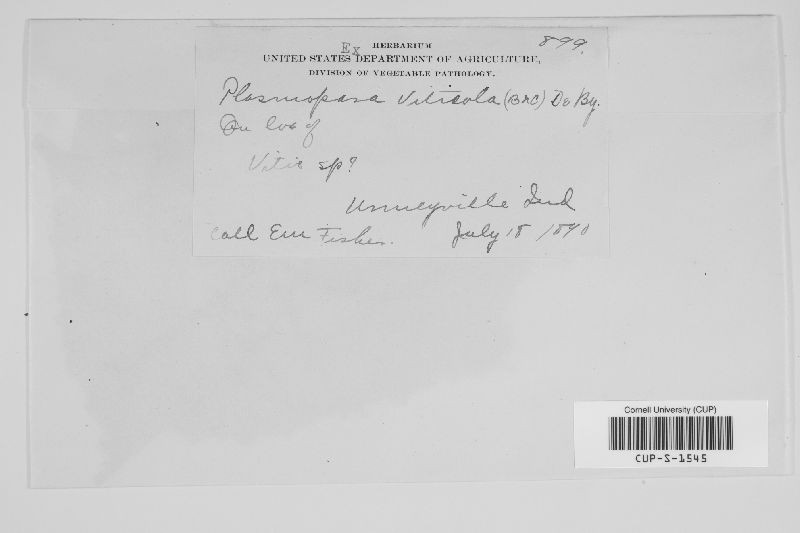 899.
Ex HERBARIUM
UNITED STATES DEPARTMENT OF AGRICULTURE,
DIVISION OF VEGETABLE PATHOLOGY.
Plasmopara Viticola (B & C) De By.
On lvs of
Vitis sp?
Ind
Coll Em Fisher. July 18 1890
Cornell University (CUP)
CUP-S-1545